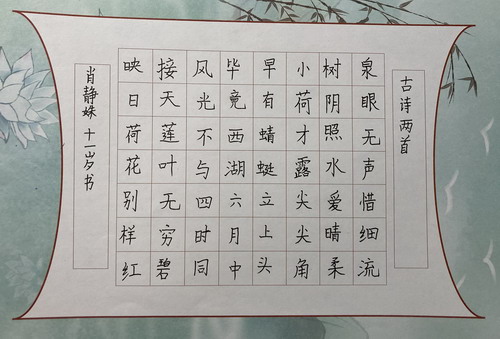 古诗两首
泉眼无声惜细流
树阴照水爱晴柔
小荷才露尖尖角
早有蜻蜓立上头
毕竟西湖六月中
风光不与四时同
接天莲叶无穷碧
映日荷花别样红
肖静姝 十一岁书